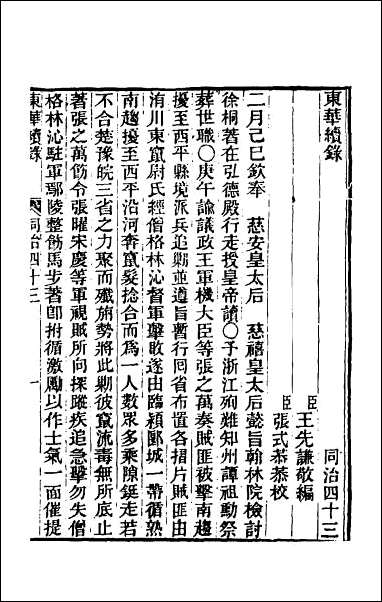 東華續錄 同治四十三
臣王先謙敬編
臣張式恭恭校
二月己巳欽奉 慈安皇太后 慈禧皇太后懿旨翰林院檢討
徐桐著在弘德殿行走授皇帝讀〇予浙江殉難知州譚祖勳祭
葬世職〇庚午諭議政王軍機大臣等張之萬奏賊匪被擊南趨
擾至西平縣境派兵追勦並遵旨暫行回省布置各摺片賊匪由
洧川東竄尉氏經僧格林沁督軍擊敗遂由臨潁郾城一帶循熟
南趨擾至西平沿河奔竄髮捻合而爲一人數眾多乘隙鋌走若
不合楚豫皖三省之力聚而殲旃勢將此剿彼竄流毒無所底止
著張之萬飭令張曜宋慶等軍視賊所向探蹤疾追急擊勿失僧
格林沁駐軍鄢陵整飭馬步著卽拊循激勵以作士氣一面催提
東華續錄 同治四十三 一